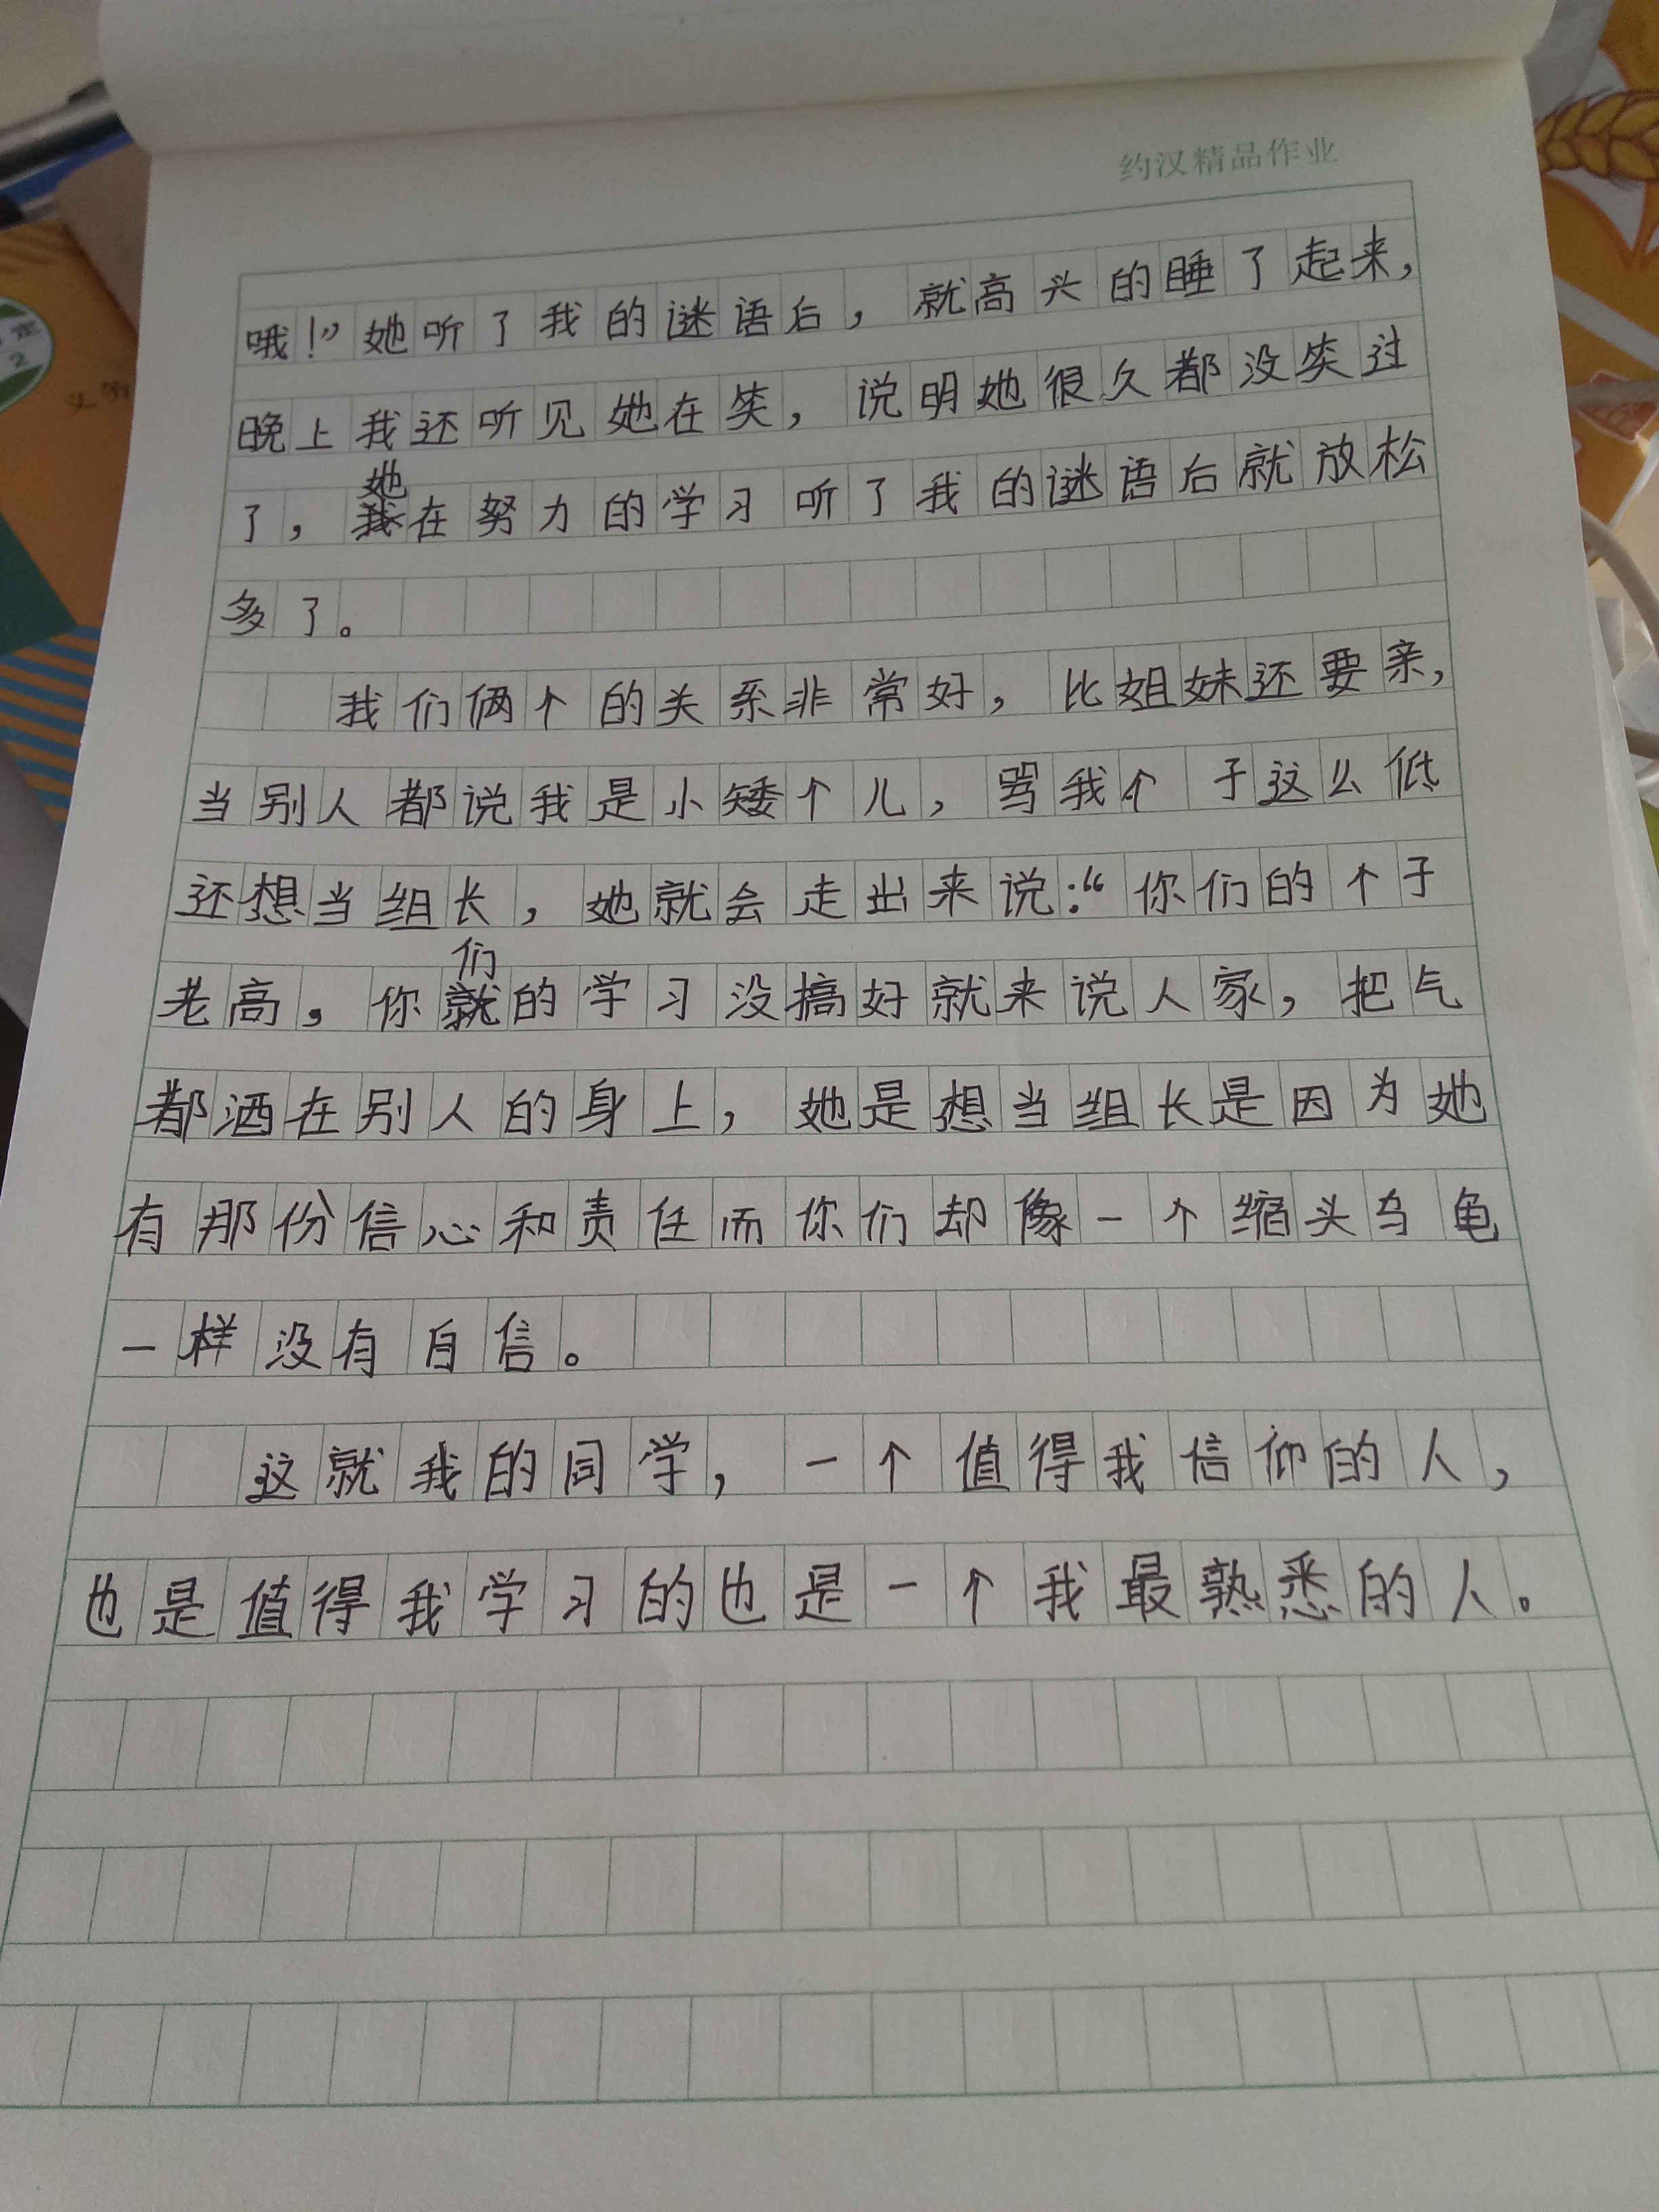 约汉精品作业
哦！”她听了我的谜语后，就高兴的睡了起来，
晚上我还听见她在笑，说明她很久都没笑过
了，她在努力的学习听了我的谜语后就放松
多了。
我们俩个的关系非常好，比姐妹还要亲，
当别人都说我是小矮个儿，骂我个子这么低
还想当组长，她就会走出来说：“你们的个子
老高。你们的学习没搞好就来说人家，把气
都洒在别人的身上，她是想当组长是因为她
有那份信心和责任而你们却像一个缩头乌龟
一样没有自信。
这就我的同学，一个值得我信仰的人，
也是值得我学习的也是一个我最熟悉的人。